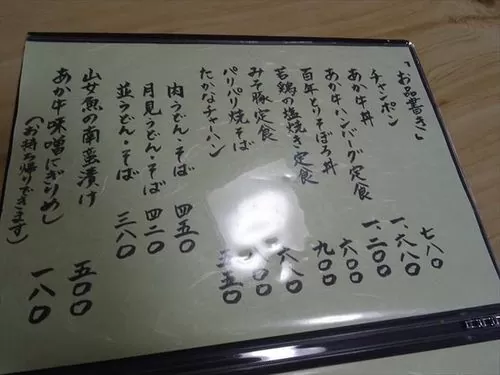 「お品書き」
チャンポン 七八〇
あか牛丼 一、六八〇
あか牛ハンバーグ定食 一、二〇〇
百年とりそぼろ丼 六〇〇
若鶏の塩焼き定食 九〇〇
みそ豚定食 六八〇
パリパリ焼そば
たかなチャーハン 五五〇
肉うどん・そば 四五〇
月見うどん・そば 四二〇
並うどん・そば 三八〇
山女魚の南蛮漬け 五〇〇
あか牛味噌にぎりめし 一八〇
(お持ち帰りできます)